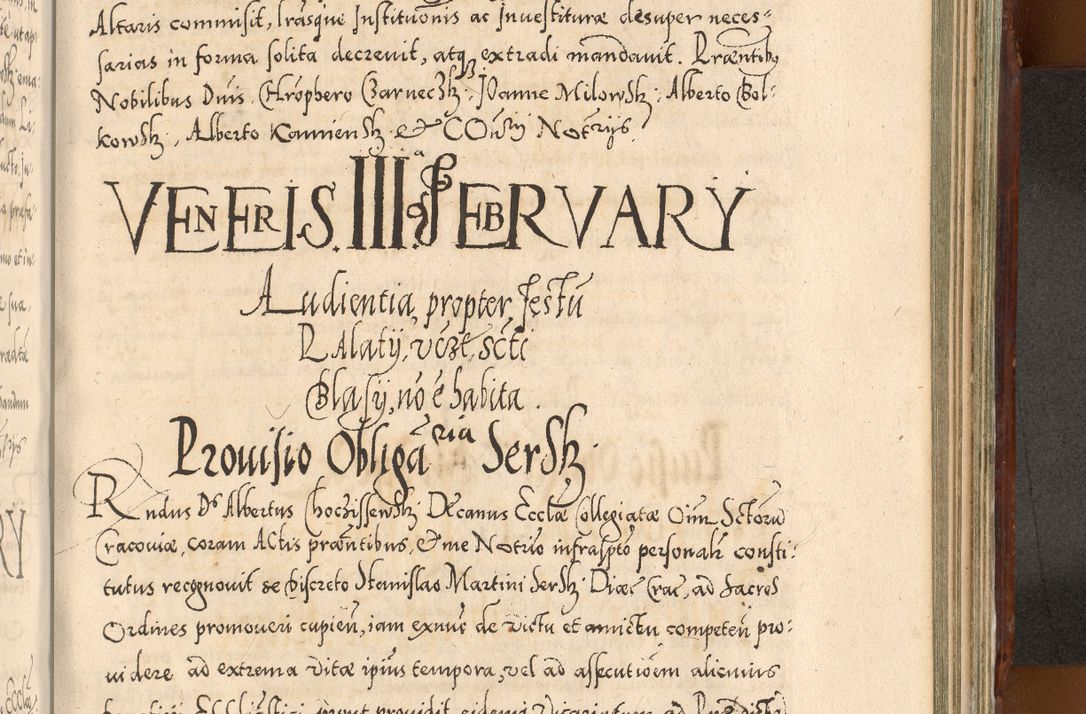 Altaris commisit, lrãsque Institutionis ac Inuestituræ desuper neces-
sarias in forma solita decreuit, atq, extradi mandauit. Præntibo
Nobilibus Dnis, Chrophero Czarneczk: Joanne Milowsk: Alberto Bol-
kowsk, Alberto Kamiensk & COñsrij Notrijs
VENERIS. IIIa. FEBRVARY
Audientia, propter, festũ
PAlatij, vcze, scti
Blasij, nõ ẽ habita.
Prouisio Obligãria Sersk:
Rndus Ds Albertus Choczissewsk: Decanus Ecclæ Collegiatæ Oim Sctorũ
Cracouiæ, coram Actis præntibus, & me Notrio infrascpto personalr consti:
tutus recognouit se discreto Stanislao Martini Sersk: Diæc Crac, ad sacros
Ordines promoueri cupien, iam exnuc de victu et amictu competeñ pro:
uidere ad extrema vitæ ipius tempora, vel ad assecutioem alicuius